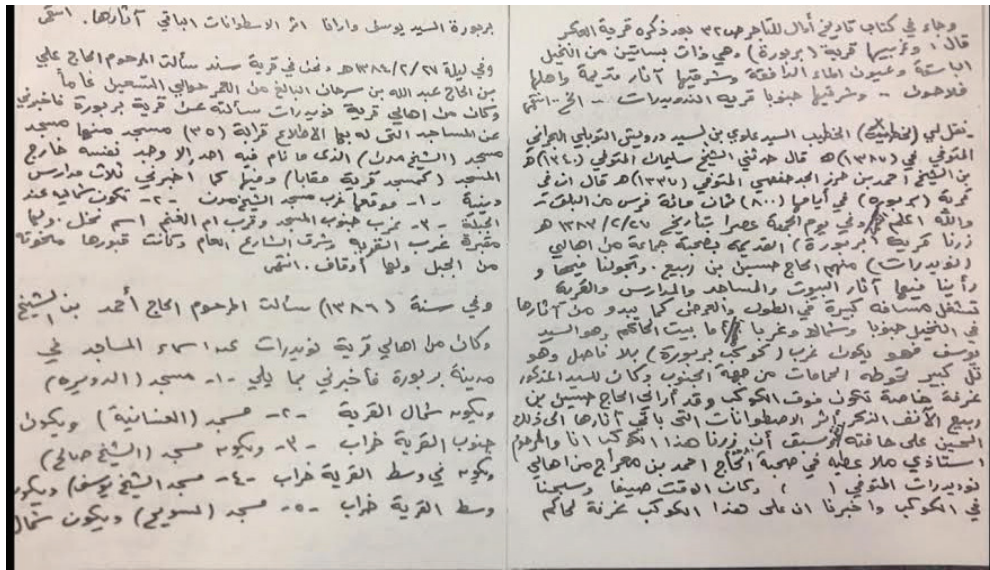 وجاء في كتاب تاريخ أوال للتاجر ص ٣٢ بعد ذكره قرية العكر
قال / وغربيها قرية (بربورة) وهي ذات بساتين من النخيل
الباسقة وعيون الماء الدافقة وشرقيها آثار قديمة وأهلها
فلاحون .. وشرقيها جنوبا قرية النويدرات .. الخ .. انتهى
نقل لي الخطيب السيد علوي بن السيد درويش التوبلي البحراني
المتوفي في (١٣٨٧) هـ قال حدثني الشيخ سليمان المتوفي (١٣٤٠) هـ
بن الشيخ أحمد بن حرز الجدحفصي المتوفي (١٣٣٧) هـ قال ان في
قرية (بربورة) في أيامها (٨٠٠) ثمان مائة فرس من البلق
والله اعلم وفي يوم الجمعة عصرا بتاريخ ١٣٨٣/٢/٢٧ هـ
زرنا قرية (بربورة) القديمة بصحبة جماعة من اهالي
(النويدرات) منهم الحاج حسين بن ربيع . وتجولنا فيها و
رأينا فيها آثار البيوت والمساجد والمدارس والقرية
تشغل مسافة كبيرة في الطول والعرض كما يبدو من آثارها
في النخيل جنوبا وشمالا وغربا أما بيت الحاكم وهو السيد
يوسف فهو يكون غرب (كوكب بربورة) بلا فاصل وهو
تل كبير تحوطه الحمامات من جهة الجنوب وكان للسيد المذكور
غرفة خاصة تكون فوق الكوكب وقد أراني الحاج حسين بن
ربيع الآنف الذكر أثر الاصطوانات التي باقي آثارها الى ذلك
الحين على حافته وسبق أن زرنا هذا الكوكب انا والمرحوم
استاذي ملا عطية في صحبة الحاج احمد بن معراج من اهالي
نويدرات المتوفي / ، وكان الوقت صيفا وسبحنا
في الكوكب واخبرنا ان على هذا الكوكب غرفة لحاكم
بربورة السيد يوسف وارانا اثر الاسطوانات الباقي آثارها . انتهى
وفي ليلة ١٣٨٤/٢/٢٧ هـ ونحن في قرية سند سألت المرحوم الحاج علي
بن الحاج عبد الله بن سرحان البالغ من العمر حوالي التسعين عاماً
وكان من اهالي قرية نويدرات سألته عن قرية بربورة فأخبرني
عن المساجد التي له بها الاطلاع قرابة (٣٥) مسجد منها مسجد
مسجد (الشيخ مدن) الذي ما نام فيه احد إلا وجد نفسه خارج
المسجد (كمسجد قرية مقابا) وفيها كما أخبرني ثلاث مدارس
دينية -١- موقعها غرب مسجد الشيخ مدن -٢- تكون شماليه عند
-٣- غرب جنوب المسجد وقرب ام الغنم اسم نخل . ولها
مقبرة غرب القرية وشرق الشارع العام وكانت قبورها منحوتة
من الجبل ولها أوقاف . انتهى
وفي سنة (١٣٨٦) سألت المرحوم الحاج أحمد بن الشيخ
وكان من اهالي قرية نويدرات عن اسماء المساجد في
مدينة بربورة فأخبرني بما يلي -١- مسجد (الدويرة)
ويكون شمال القرية -٢- مسجد ويكون
جنوب القرية خراب -٣- ويكون مسجد (الشيخ صالح)
ويكون في وسط القرية خراب -٤- مسجد الشيخ يوسف) ويكون
وسط القرية خراب -٥- مسجد ويكون شمال